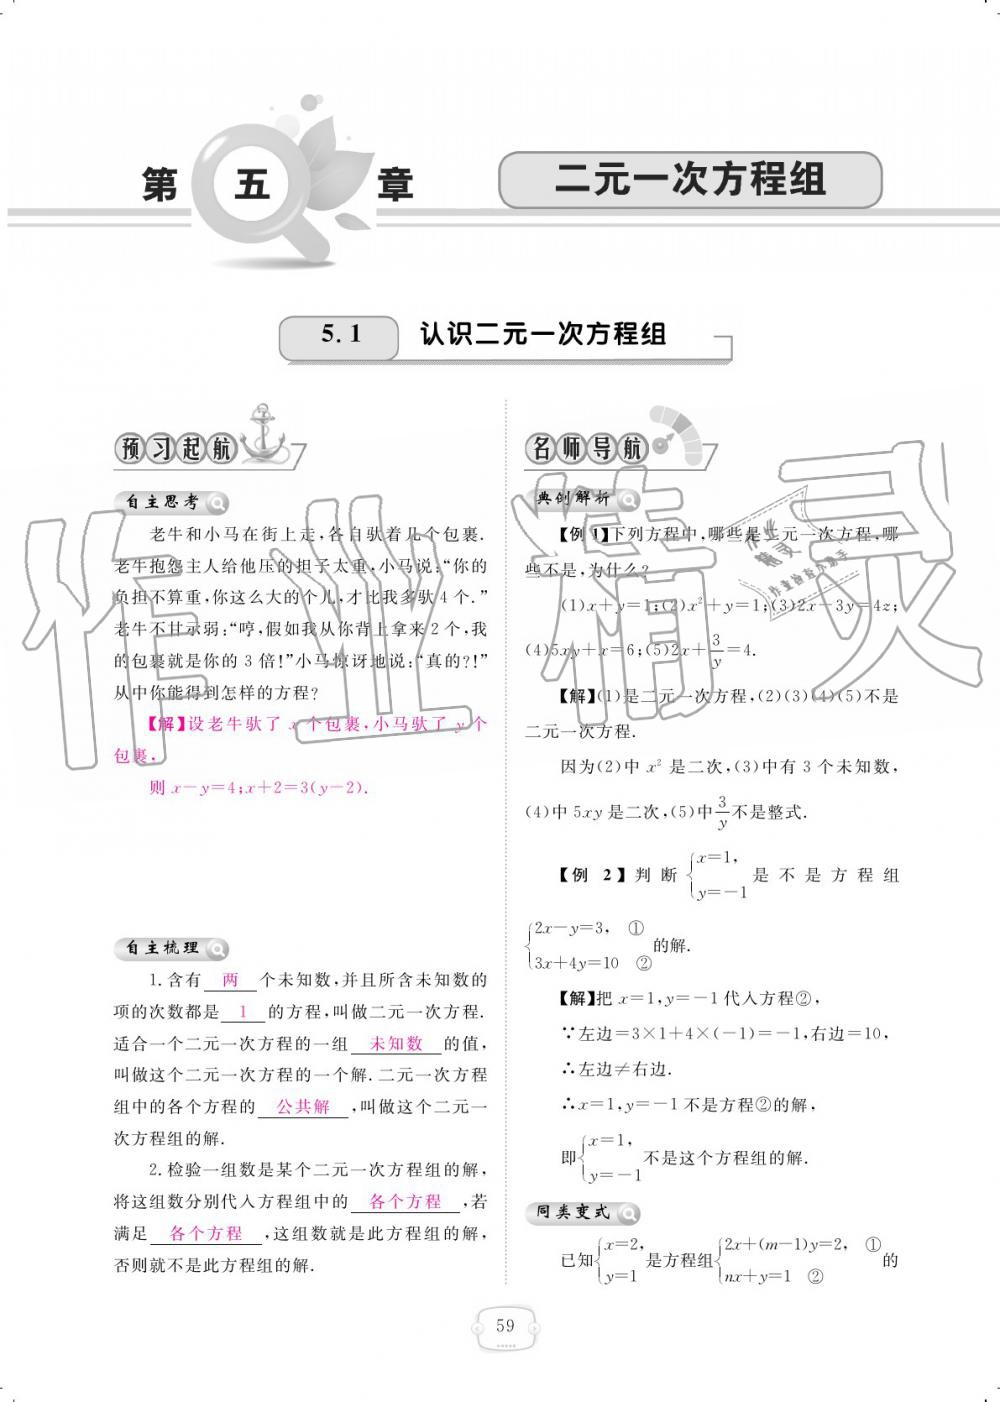 第五章
二元一次方程组
5.1 认识二元一次方程组
预习起航
自主思考
老牛和小马在街上走,各自驮着几个包裹.
老牛抱怨主人给他压的担子太重,小马说:“你的
负担不算重,你这么大的个儿,才比我多驮4个.”
老牛不甘示弱:“哼,假如我从你背上拿来2个,我
的包裹就是你的3倍!”小马惊讶地说:“真的?!”
从中你能得到怎样的方程?
【解】设老牛驮了x个包裹,小马驮了y个
包裹,
则x-y=4;x+2=3(y-2).
自主梳理
1.含有 两 个未知数,并且所含未知数的
项的次数都是 1 的方程,叫做二元一次方程.
适合一个二元一次方程的一组 未知数 的值,
叫做这个二元一次方程的一个解.二元一次方程
组中的各个方程的 公共解 ,叫做这个二元一
次方程组的解.
2.检验一组数是某个二元一次方程组的解,
将这组数分别代入方程组中的 各个方程 ,若
满足 各个方程 ,这组数就是此方程组的解,
否则就不是此方程组的解.
名师导航
典例解析
【例1】下列方程中,哪些是二元一次方程,哪
些不是,为什么?
(1)x+y=1;(2)x²+y=1;(3)2x-3y=4z;
(4)5xy+x=6;(5)2x+3/y=4.
【解】(1)是二元一次方程,(2)(3)(4)(5)不是
二元一次方程.
因为(2)中x²是二次,(3)中有3个未知数,
(4)中5xy是二次,(5)中3/y不是整式.
【例2】判断{x=1, y=-1 是不是方程组
{2x-y=3, ① 3x+4y=10 ② 的解.
【解】把x=1,y=-1代入方程②,
∵左边=3×1+4×(-1)=-1,右边=10,
∴左边≠右边.
∴x=1,y=-1不是方程②的解,
即{x=1, y=-1 不是这个方程组的解.
同类变式
已知{x=2, y=1 是方程组{2x+(m-1)y=2, ① nx+y=1 ② 的
59
作业精灵